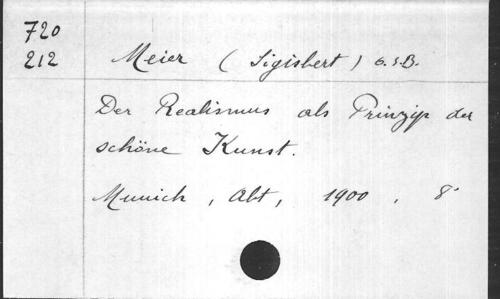 720
212 Meier (Sigisbert) o.s.B.
Der Realismus als Prinzip der
schöne Kunst.
Munich, Abt, 1900, 8°